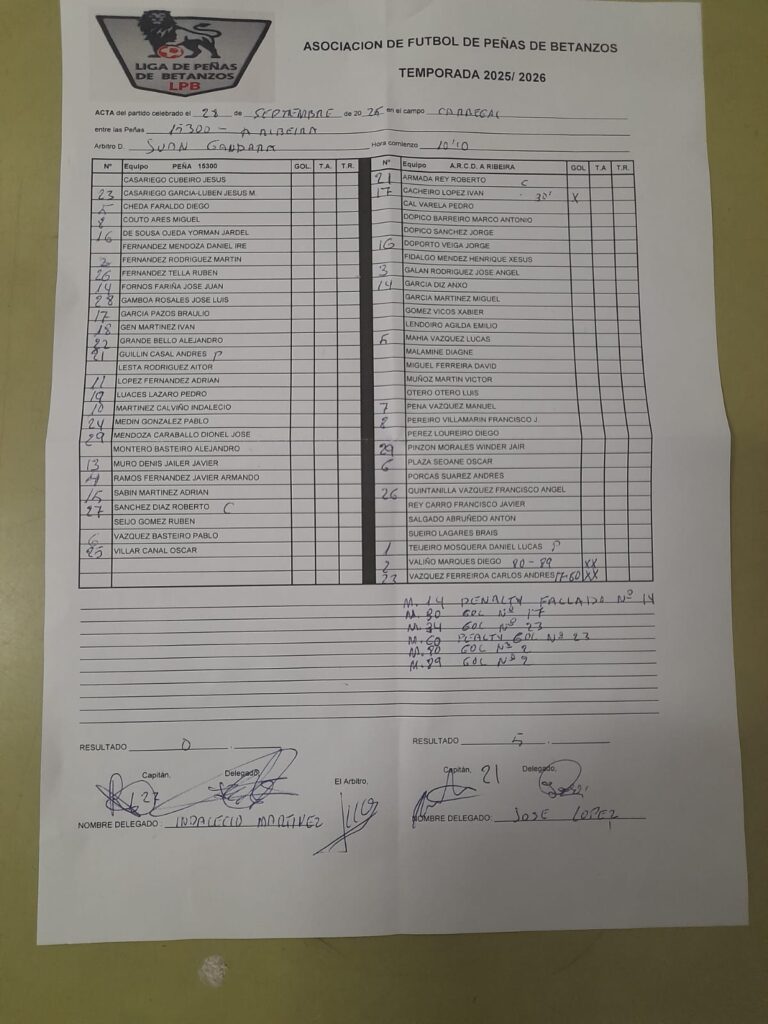 LIGA DE PEÑAS
DE BETANZOS
LPB
ASOCIACION DE FUTBOL DE PEÑAS DE BETANZOS
TEMPORADA 2025/ 2026
ACTA del partido celebrado el 28 de SEPTIEMBRE de 20 25 en el campo CARREGAL
entre las Peñas 15300 - A RIBEIRA
Arbitro D. JUAN GANDARA Hora comienzo 10'10
Nº Equipo PEÑA 15300 GOL T.A. T.R.
CASARIEGO CUBEIRO JESUS
23 CASARIEGO GARCIA-LUBEN JESUS M.
5 CHEDA FARALDO DIEGO
8 COUTO ARES MIGUEL
16 DE SOUSA OJEDA YORMAN JARDEL
FERNANDEZ MENDOZA DANIEL IRE
2 FERNANDEZ RODRIGUEZ MARTIN
26 FERNANDEZ TELLA RUBEN
14 FORNOS FARIÑA JOSE JUAN
28 GAMBOA ROSALES JOSE LUIS
17 GARCIA PAZOS BRAULIO
18 GEN MARTINEZ IVAN
22 GRANDE BELLO ALEJANDRO
21 GUILLIN CASAL ANDRES P
LESTA RODRIGUEZ AITOR
11 LOPEZ FERNANDEZ ADRIAN
19 LUACES LAZARO PEDRO
10 MARTINEZ CALVIÑO INDALECIO
24 MEDIN GONZALEZ PABLO
29 MENDOZA CARABALLO DIONEL JOSE
MONTERO BASTEIRO ALEJANDRO
13 MURO DENIS JAILER JAVIER
4 RAMOS FERNANDEZ JAVIER ARMANDO
15 SABIN MARTINEZ ADRIAN
27 SANCHEZ DIAZ ROBERTO C
SEIJO GOMEZ RUBEN
6 VAZQUEZ BASTEIRO PABLO
25 VILLAR CANAL OSCAR
Nº Equipo A.R.C.D. A RIBEIRA GOL T.A T.R.
21 ARMADA REY ROBERTO C
17 CACHEIRO LOPEZ IVAN 30' X
CAL VARELA PEDRO
DOPICO BARREIRO MARCO ANTONIO
DOPICO SANCHEZ JORGE
16 DOPORTO VEIGA JORGE
FIDALGO MENDEZ HENRIQUE XESUS
3 GALAN RODRIGUEZ JOSE ANGEL
14 GARCIA DIZ ANXO
GARCIA MARTINEZ MIGUEL
GOMEZ VICOS XABIER
LENDOIRO AGILDA EMILIO
5 MAHIA VAZQUEZ LUCAS
MALAMINE DIAGNE
MIGUEL FERREIRA DAVID
MUÑOZ MARTIN VICTOR
OTERO OTERO LUIS
7 PENA VAZQUEZ MANUEL
8 PEREIRO VILLAMARIN FRANCISCO J.
PEREZ LOUREIRO DIEGO
29 PINZON MORALES WINDER JAIR
6 PLAZA SEOANE OSCAR
PORCAS SUAREZ ANDRES
26 QUINTANILLA VAZQUEZ FRANCISCO ANGEL
REY CARRO FRANCISCO JAVIER
SALGADO ABRUÑEDO ANTON
SUEIRO LAGARES BRAIS
1 TEIJEIRO MOSQUERA DANIEL LUCAS P
2 VALIÑO MARQUES DIEGO 80 - 89 XX
23 VAZQUEZ FERREIROA CARLOS ANDRES XX
M. 14 PENALTY FALLADO Nº 14
M. 30 GOL Nº 17
M. 34 GOL Nº 23
M. 60 PEALTY GOL Nº 23
M. 80 GOL Nº 2
M. 89 GOL Nº 2
RESULTADO 0
RESULTADO 5
Capitán, Delegado,
27
El Arbitro,
Capitán, 21 Delegado,
NOMBRE DELEGADO : INDALECIO MARTINEZ
NOMBRE DELEGADO: JOSE LOPEZ